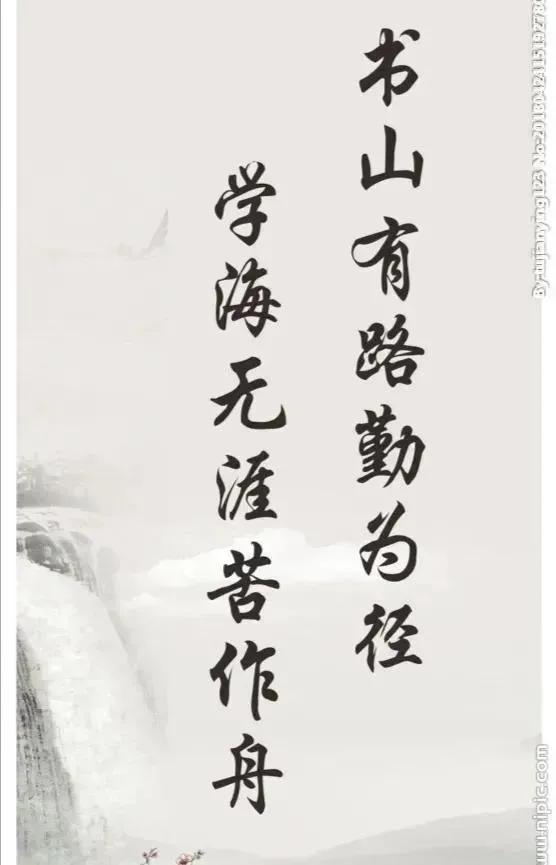 书山有路勤为径
学海无涯苦作舟
By:tujianying123 No:20180424115192778
www.nipic.com